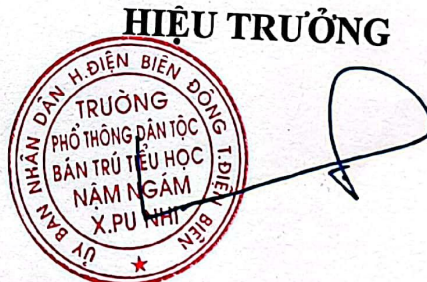 HIỆU TRƯỞNG
ỦY BAN NHÂN DÂN H.ĐIỆN BIÊN ĐÔNG T.ĐIỆN BIÊN
TRƯỜNG
PHỔ THÔNG DÂN TỘC
BÁN TRÚ TIỂU HỌC
NẬM NGÁM
X.PU NHI